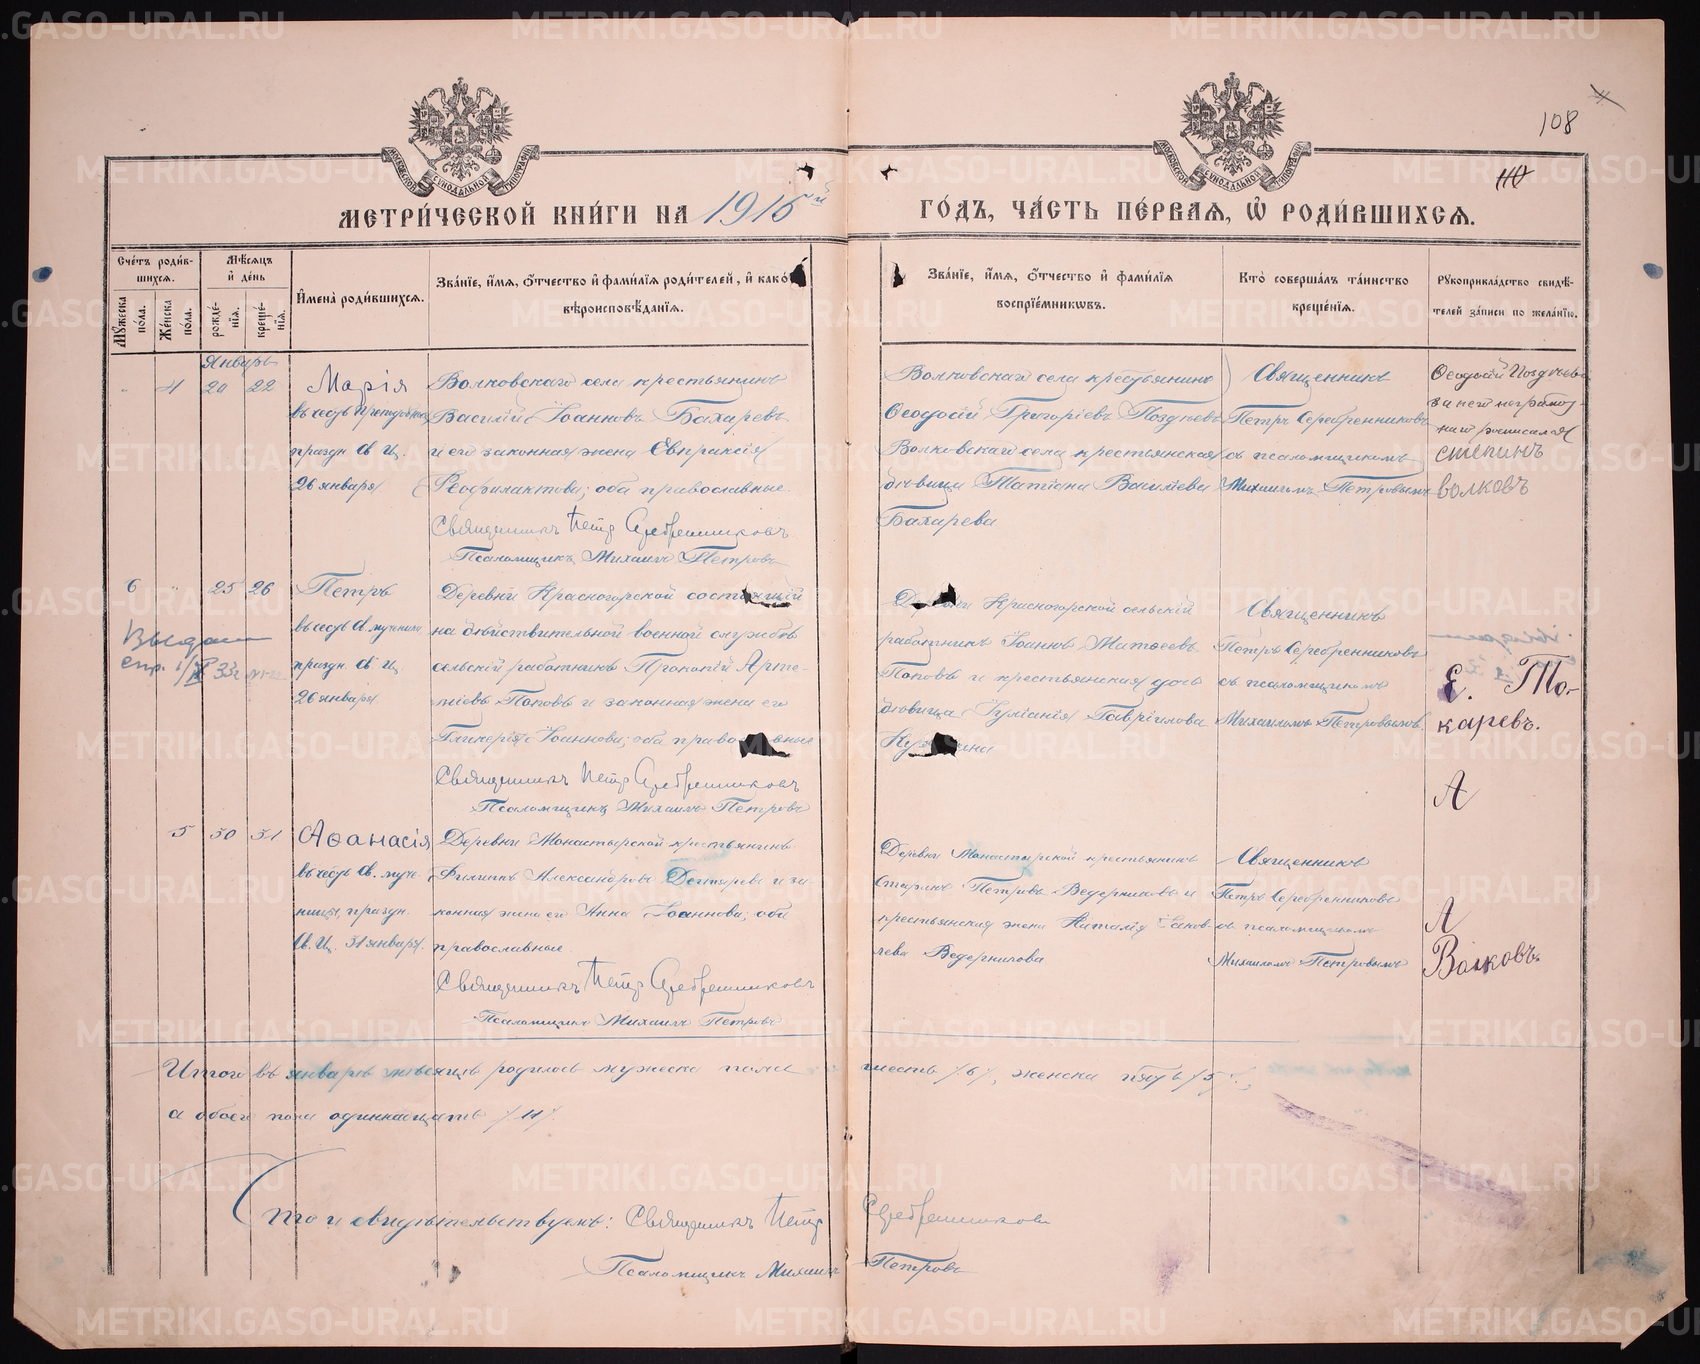 108
110
МОСКОВСКОЙ СѴНОДАЛЬНОЙ ТИПОГРАФІИ
МОСКОВСКОЙ СѴНОДАЛЬНОЙ ТИПОГРАФІИ
МЕТРИ́ЧЕСКОЙ КНИ́ГИ НА 1916й ГО́ДЪ, ЧА́СТЬ ПЕ́РВАѦ, Ѽ РОДИ́ВШИХСѦ.
Сче́тъ роди́в-
шихсѧ.
Мꙋ́жеска по́ла.
Же́нска по́ла.
Мѣ́сѧцъ
и҆ де́нь
рожде́-
нїѧ.
креще́-
нїѧ.
И҆мена̀ роди́вшихсѧ.
Зва́нїе, и҆́мѧ, ѻ҆́тчество и҆ фами́лїѧ роди́телей, и҆ како́
вѣроисповѣ́данїѧ.
Зва́нїе, и҆́мѧ, ѻ҆́тчество и҆ фами́лїѧ
воспрїе́мникѡвъ.
Кто̀ соверша́лъ та́инство
креще́нїѧ.
Рꙋкоприкла́дство свидѣ́-
телей за́писи по жела́нїю.
Январь
4 20 22
Марія
въ честь Преподобной
праздн. Св. Ц.
26 января
Волковскаго села крестьянинъ
Василій Іоанновъ Бахаревъ
и его законная жена Евпраксія
Феофилактова; оба православные.
Священникъ Петр Серебренниковъ
Псаломщикъ Михаилъ Петровъ
Волковскаго села крестьянинъ
Ѳеодосій Григоріевъ Поздѣевъ
Волковскаго села крестьянская
дѣвица Татіана Василіева
Бахарева
Священникъ
Петръ Серебренниковъ
съ псаломщикомъ
Михаиломъ Петровымъ
Ѳеодосій Поздѣевъ
за него неграмот-
наго росписался
степинъ
волковъ
6 25 26
Выдан
спр.
Петръ
въ честь Св. мученика
праздн. Св. Ц.
26 января
Деревни Красногорской состоящій
на дѣйствительной военной службѣ
сельскій работникъ Прокопій Арте-
міевъ Поповъ и законная жена его
Гликерія Іоаннова; оба православные
Священникъ Петр Серебренниковъ
Псаломщикъ Михаилъ Петровъ
Деревни Красногорской сельскій
работникъ Іоаннъ Матѳеевъ
Поповъ и крестьянская дочь
дѣвица Іуліанія Гавріилова
Священникъ
Петръ Серебренниковъ
съ псаломщикомъ
Михаиломъ Петровымъ
Е. То-
каревъ.
А
5 30 31
Аѳанасія
въ честь Св. муче-
ницы, праздн.
Св. Ц. 31 января.
Деревни Монастырской крестьянинъ
Филиппъ Александровъ Дегтяревъ и за-
конная жена его Анна Іоаннова; оба
православные.
Священникъ Петр Серебренниковъ
Псаломщикъ Михаилъ Петровъ
Деревни Монастырской крестьянинъ
Стефанъ Петровъ Ведерниковъ и
крестьянская жена Наталія Іаков-
лева Ведерникова
Священникъ
Петръ Серебренниковъ
съ псаломщикомъ
Михаиломъ Петровымъ
А
Волковъ.
Итого въ январѣ мѣсяцѣ родилось мужеска пола шесть /6/, женска пять /5/,
а обоего пола одиннадцать /11/.
Что и свидѣтельствуемъ: Священникъ Петр Серебренниковъ
Псаломщикъ Михаилъ Петровъ
METRIKI.GASO-URAL.RU